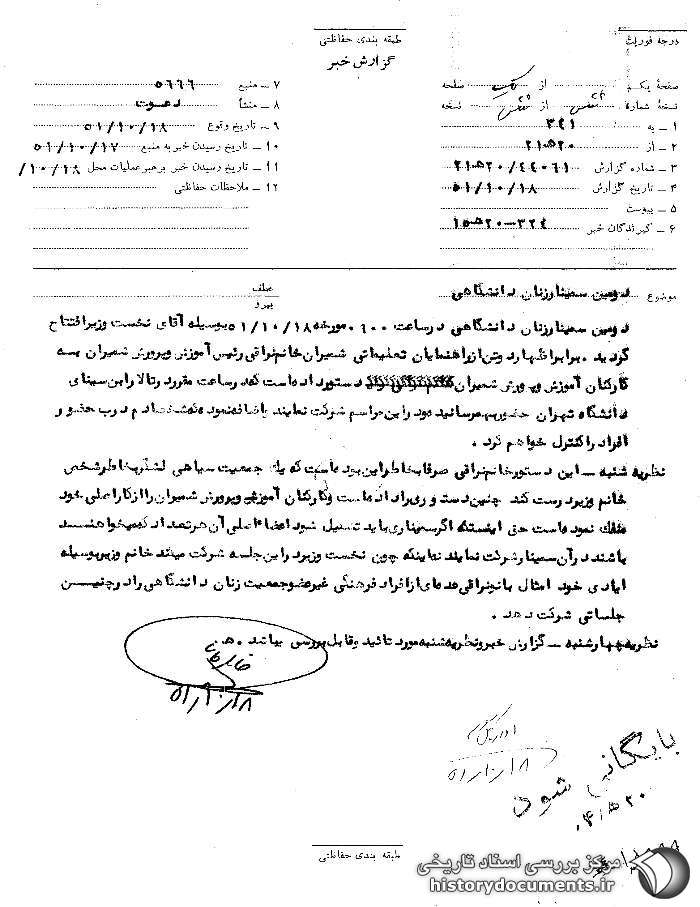 درجه فوریت
طبقه بندی حفاظتی
گزارش خبر
صفحهٔ یک از یک صفحه
نسخهٔ شماره شش از شش نسخه
۱ ـ به ۳۴۱
۲ ـ از ۲۱ه۲۰
۳ ـ شماره گزارش ۲۱ه۲۰/۴۴۰۶۱
۴ ـ تاریخ گزارش ۵۱/۱۰/۱۸
۵ ـ پیوست
۶ ـ گیرندگان خبر ۱۵ه۲۰-۳۲۴
۷ ـ منبع ۵۶۶۶
۸ ـ منشأ دعوت
۹ ـ تاریخ وقوع ۵۱/۱۰/۱۸
۱۰ ـ تاریخ رسیدن خبر به منبع ۵۱/۱۰/۱۷
۱۱ ـ تاریخ رسیدن خبر به رهبر عملیات محل ۱۰/۱۸/
۱۲ ـ ملاحظات حفاظتی
موضوع دومین سمینار زنان دانشگاهی
عطف
پیرو
دومین سمینار زنان دانشگاهی در ساعت ۶۰۰ مورخه ۵۱/۱۰/۱۸ بوسیله آقای نخست وزیر افتتاح
گردید . برابر اظهار دوتن از راهنمایان تعلیماتی شمیران خانم نراقی رئیس آموزش و پرورش شمیران به
کارکنان آموزش و پرورش شمیران دستور داده است که در ساعت مقرر در تالار ابن سینای
دانشگاه تهران حضور بهم رسانید و در این مراسم شرکت نمایند باضافه نموده شخصا دم درب حضور و
افراد را کنترل خواهم کرد .
نظریه شنبه ـ این دستور خانم نراقی صرفا بخاطر این بوده است که یک جمعیت سیاهی لشگر بخاطر شخص
خانم وزیر درست کند چنین دستوری را داده است و کارکنان آموزش و پرورش شمیران را از کار اصلی خود
منفک نموده است حتی اینستکه اگر سمیناری باید تشکیل شود اعضاء اصلی آن هر تعداد که میخواهند
باشند در آن سمینار شرکت نمایند نه اینکه چون نخست وزیر در این جلسه شرکت میکند خانم وزیر بوسیله
ایادی خود امثال بانو نراقی عده ای از افراد فرهنگی غیر عضو جمعیت زنان دانشگاهی را در چنین
جلساتی شرکت دهد .
نظریه چهارشنبه ـ گزارش خبر و نظریه شنبه مورد تائید و قابل بررسی میباشد . ه ن
۵۱/۱۰/۱۸
۵۱/۱۰/۱۸
بایگانی شود
۲۰ه۴
طبقه بندی حفاظتی
مرکز بررسی اسناد تاریخی
historydocuments.ir